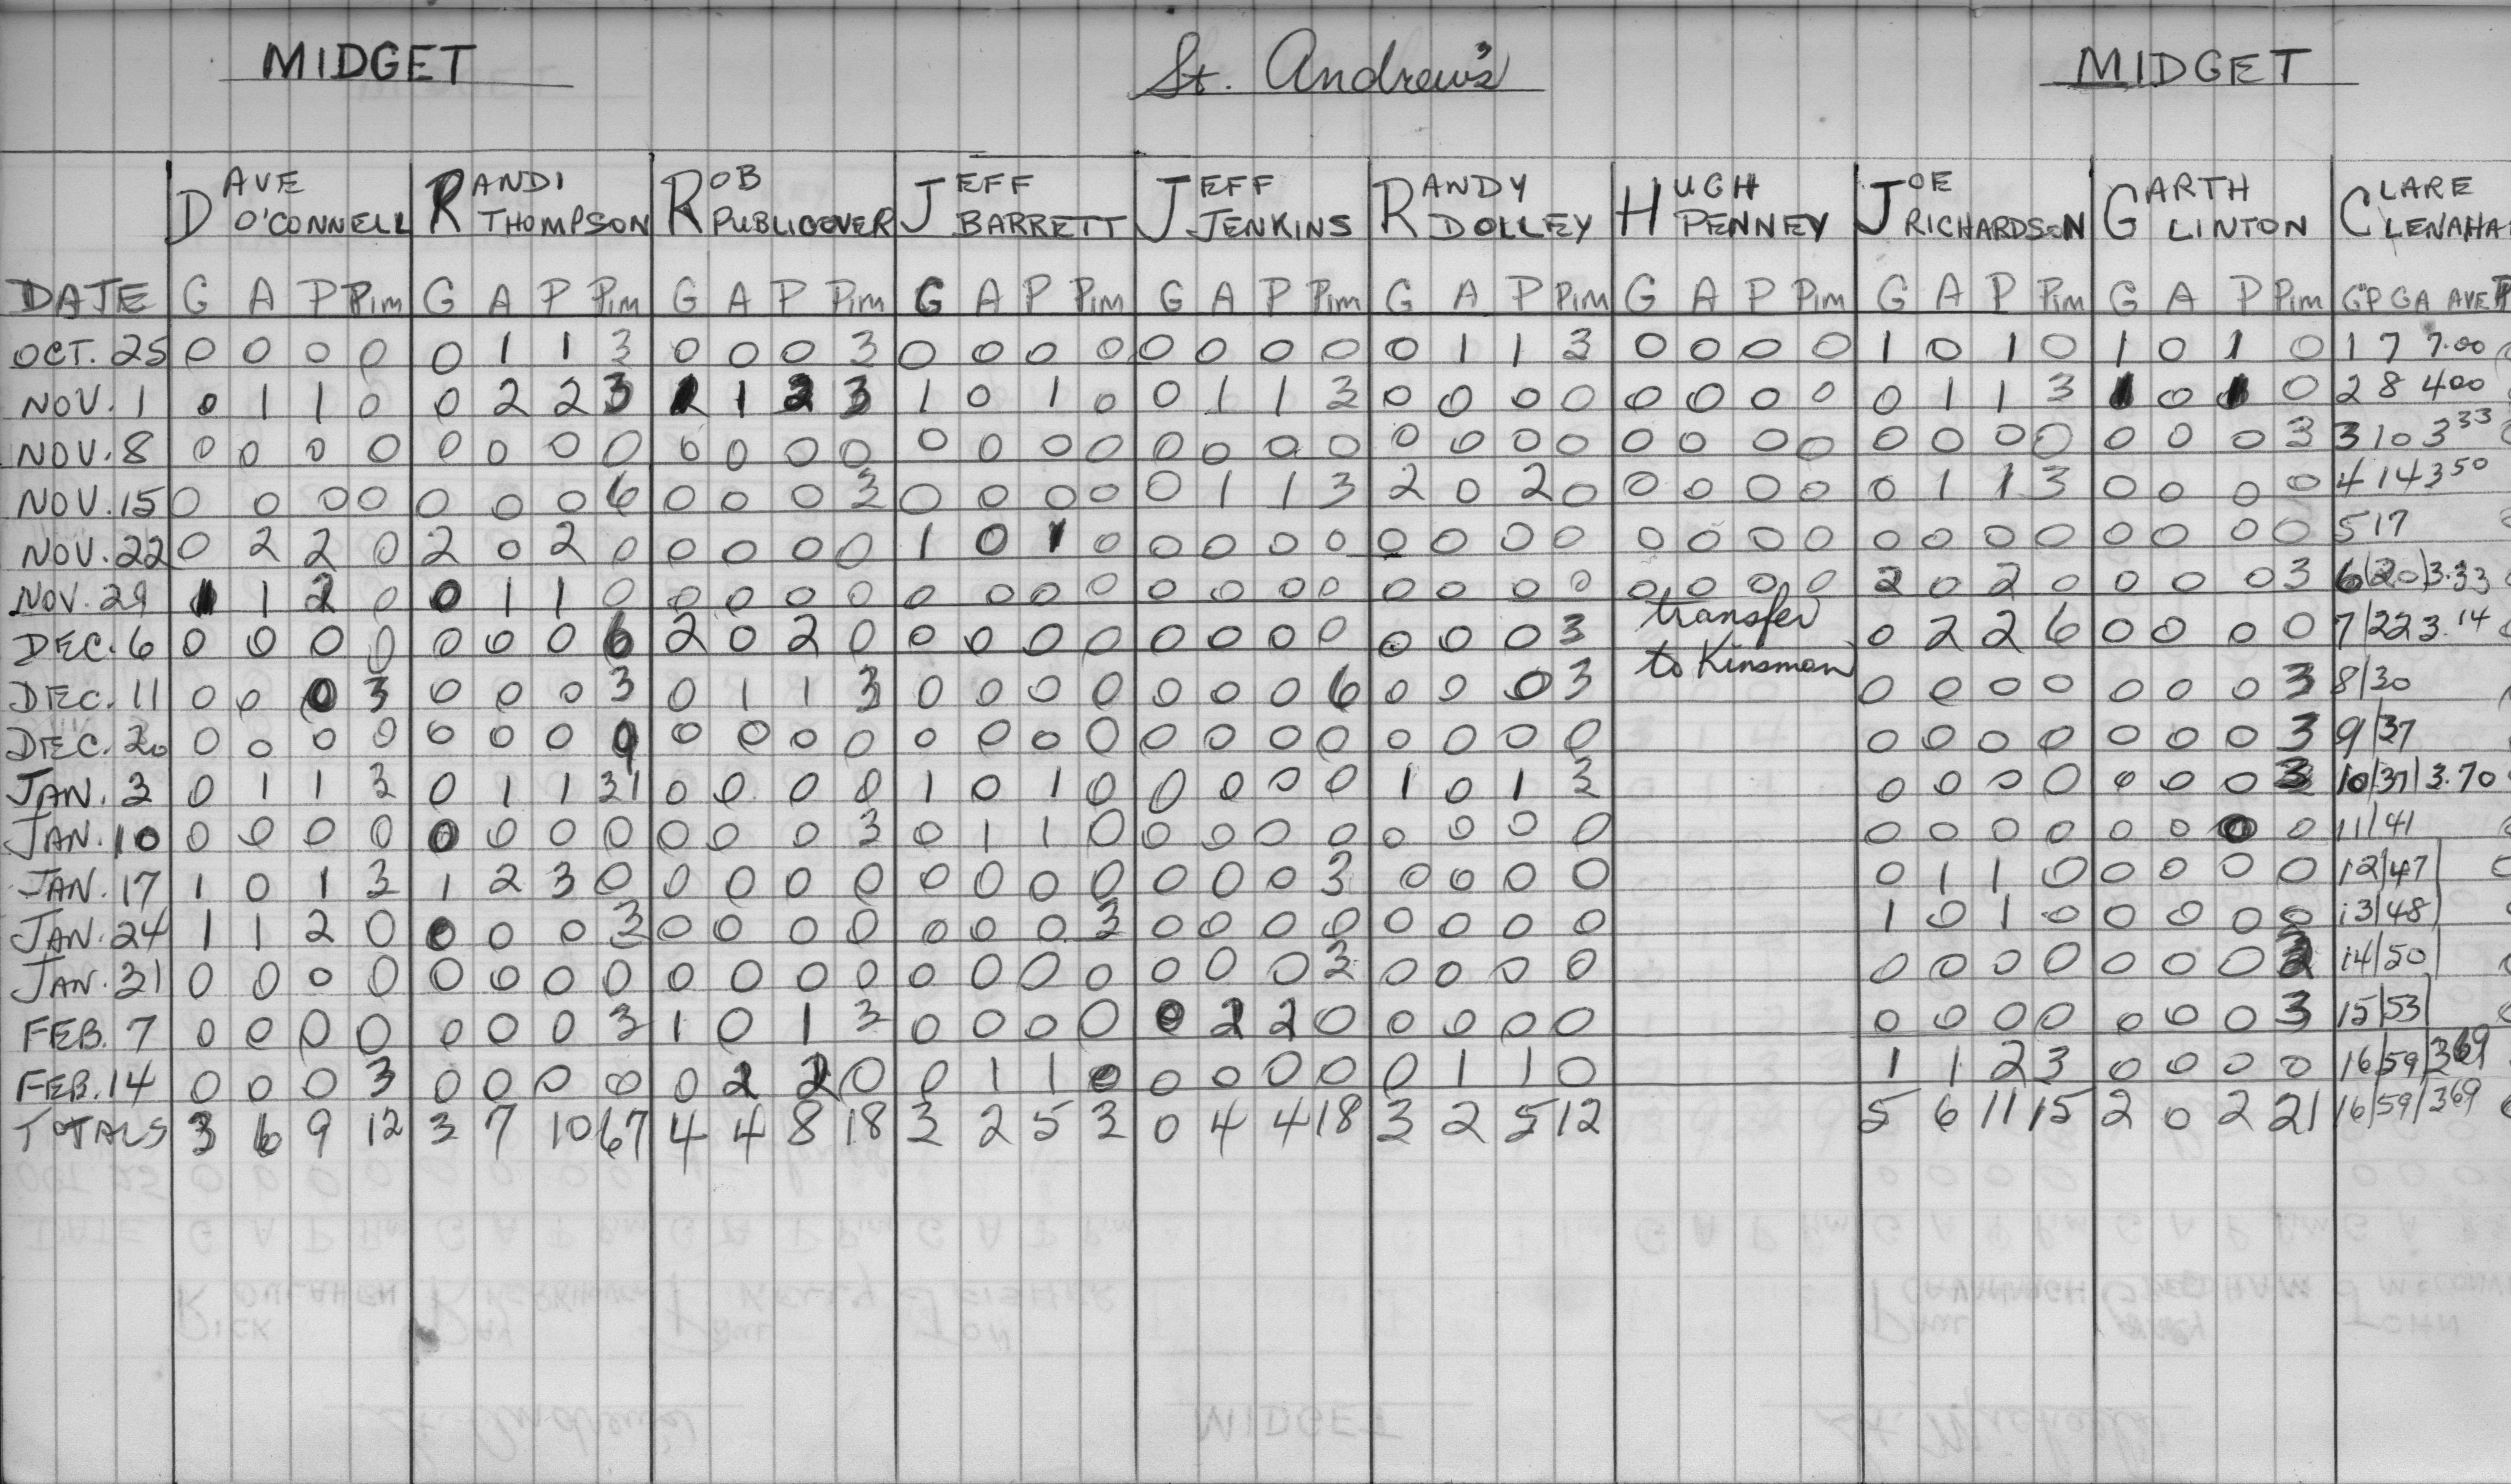 MIDGET St. Andrew's MIDGET
DAVE O'CONNELL RANDI THOMPSON ROB PUBLICOVER JEFF BARRETT JEFF JENKINS RANDY DOLLEY HUGH PENNEY JOE RICHARDSON GARTH LINTON CLARE CLENAHA
DATE G A P Pim G A P Pim G A P Pim G A P Pim G A P Pim G A P Pim G A P Pim G A P Pim G A P Pim GP GA AVE P
OCT. 25 0 0 0 0 0 1 1 3 0 0 0 3 0 0 0 0 0 0 0 0 0 1 1 3 0 0 0 0 1 0 1 0 1 0 1 0 1 7 7.00
NOV. 1 0 1 1 0 0 2 2 3 1 1 2 3 1 0 1 0 0 1 1 3 0 0 0 0 0 0 0 0 0 1 1 3 1 0 1 0 2 8 400
NOV. 8 0 0 0 0 0 0 0 0 0 0 0 0 0 0 0 0 0 0 0 0 0 0 0 0 0 0 0 0 0 0 0 0 0 0 0 3 3 10 333
NOV. 15 0 0 0 0 0 0 0 6 0 0 0 3 0 0 0 0 0 1 1 3 2 0 2 0 0 0 0 0 0 1 1 3 0 0 0 0 4 14 350
NOV. 22 0 2 2 0 2 0 2 0 0 0 0 0 1 0 1 0 0 0 0 0 0 0 0 0 0 0 0 0 0 0 0 0 0 0 0 0 5 17
NOV. 29 1 1 2 0 0 1 1 0 0 0 0 0 0 0 0 0 0 0 0 0 0 0 0 0 0 0 0 0 2 0 2 0 0 0 0 3 6/20/3.33
DEC. 6 0 0 0 0 0 0 0 6 2 0 2 0 0 0 0 0 0 0 0 0 0 0 0 3 transfer 0 2 2 6 0 0 0 0 7/22 3.14
DEC. 11 0 0 0 3 0 0 0 3 0 1 1 3 0 0 0 0 0 0 0 6 0 0 0 3 to Kinsmen 0 0 0 0 0 0 0 3 8/30
DEC. 20 0 0 0 0 0 0 0 9 0 0 0 0 0 0 0 0 0 0 0 0 0 0 0 0 0 0 0 0 0 0 0 3 9/37
JAN. 3 0 1 1 3 0 1 1 31 0 0 0 0 1 0 1 0 0 0 0 0 1 0 1 3 0 0 0 0 0 0 0 3 10/37/3.70
JAN. 10 0 0 0 0 0 0 0 0 0 0 0 3 0 1 1 0 0 0 0 0 0 0 0 0 0 0 0 0 0 0 0 0 11/41
JAN. 17 1 0 1 3 1 2 3 0 0 0 0 0 0 0 0 0 0 0 0 3 0 0 0 0 0 1 1 0 0 0 0 0 12/47/
JAN. 24 1 1 2 0 0 0 0 3 0 0 0 0 0 0 0 3 0 0 0 0 0 0 0 0 1 0 1 0 0 0 0 0 13/48/
JAN. 31 0 0 0 0 0 0 0 0 0 0 0 0 0 0 0 0 0 0 0 3 0 0 0 0 0 0 0 0 0 0 0 3 14/50/
FEB. 7 0 0 0 0 0 0 0 3 1 0 1 3 0 0 0 0 0 2 2 0 0 0 0 0 0 0 0 0 0 0 0 3 15/53/
FEB. 14 0 0 0 3 0 0 0 0 0 2 2 0 0 1 1 0 0 0 0 0 0 1 1 0 1 1 2 3 0 0 0 0 16/59/369
TOTALS 3 6 9 12 3 7 10 67 4 4 8 18 3 2 5 3 0 4 4 18 3 2 5 12 5 6 11 15 2 0 2 21 16/59/369